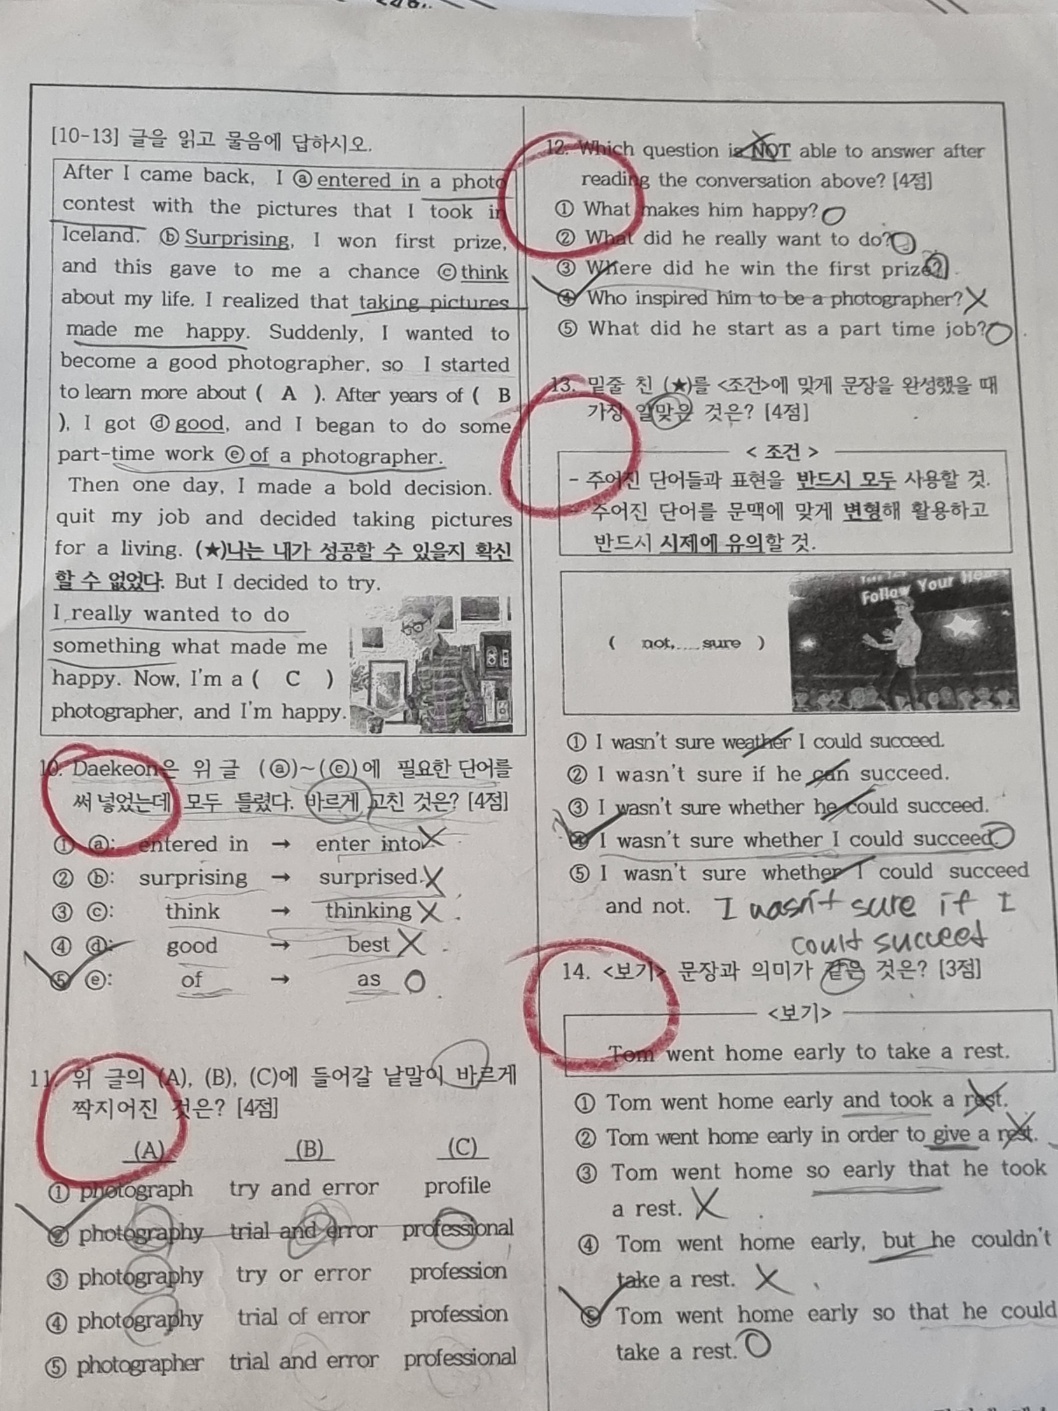 [10-13] 글을 읽고 물음에 답하시오.
After I came back, I ⓐ entered in a photo
contest with the pictures that I took in
Iceland. ⓑ Surprising, I won first prize,
and this gave to me a chance ⓒ think
about my life. I realized that taking pictures
made me happy. Suddenly, I wanted to
become a good photographer, so I started
to learn more about ( A ). After years of ( B
), I got ⓓ good, and I began to do some
part-time work ⓔ of a photographer.
Then one day, I made a bold decision. I
quit my job and decided taking pictures
for a living. (★)나는 내가 성공할 수 있을지 확신
할 수 없었다. But I decided to try.
I really wanted to do
something what made me
happy. Now, I'm a ( C )
photographer, and I'm happy.
10. Daekeon은 위 글 (ⓐ)~(ⓔ)에 필요한 단어를
써 넣었는데 모두 틀렸다. 바르게 고친 것은? [4점]
① ⓐ: entered in → enter into X
② ⓑ: surprising → surprised. X
③ ⓒ: think → thinking X
④ ⓓ: good → best X
⑤ ⓔ: of → as O
11. 위 글의 (A), (B), (C)에 들어갈 낱말이 바르게
짝지어진 것은? [4점]
(A) (B) (C)
① photograph try and error profile
② photography trial and error professional
③ photography try or error profession
④ photography trial of error profession
⑤ photographer trial and error professional
12. Which question is NOT able to answer after
reading the conversation above? [4점]
① What makes him happy? O
② What did he really want to do? O
③ Where did he win the first prize?
④ Who inspired him to be a photographer? X
⑤ What did he start as a part time job? O
13. 밑줄 친 (★)를 <조건>에 맞게 문장을 완성했을 때
가장 알맞은 것은? [4점]
< 조건 >
- 주어진 단어들과 표현을 반드시 모두 사용할 것.
- 주어진 단어를 문맥에 맞게 변형해 활용하고
반드시 시제에 유의할 것.
( not, .... sure )
Follow Your
① I wasn't sure weather I could succeed.
② I wasn't sure if he can succeed.
③ I wasn't sure whether he could succeed.
④ I wasn't sure whether I could succeed. O
⑤ I wasn't sure whether I could succeed
and not.
I wasn't sure if I
could succeed
14. <보기> 문장과 의미가 같은 것은? [3점]
<보기>
Tom went home early to take a rest.
① Tom went home early and took a rest.
② Tom went home early in order to give a rest.
③ Tom went home so early that he took
a rest. X
④ Tom went home early, but he couldn't
take a rest. X
⑤ Tom went home early so that he could
take a rest. O